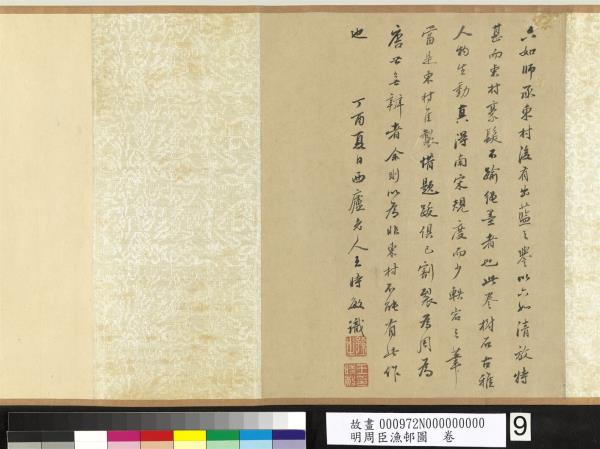 六如師承東村後有出藍之譽以六如清放特
甚而東村豪髮不踰繩墨者也此卷樹石古雅
人物生動真得南宋規度而少軼宕之筆
當是東村佳製惜題跋俱已割裂為周為
唐世無辯者余則以為非東村不能有此作
也
丁酉夏日西廬老人王時敏識
故畫 000972N000000000
明周臣漁邨圖 卷
9